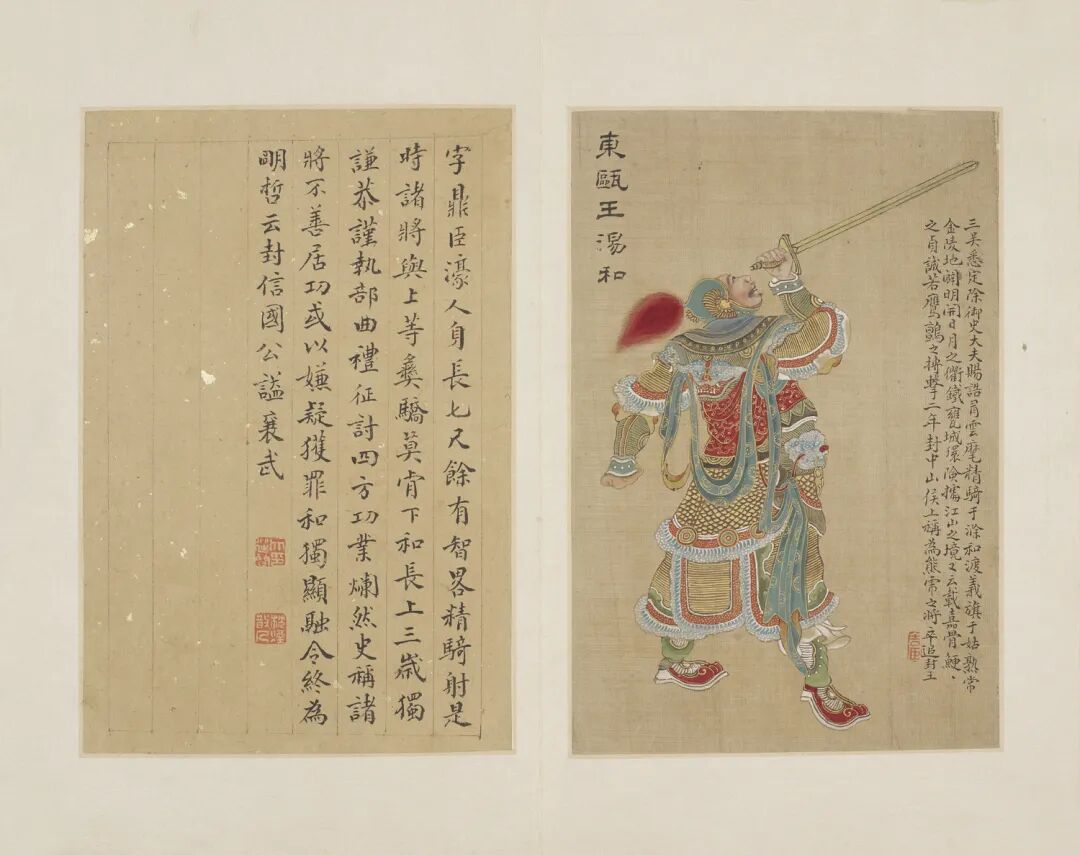 東甌王湯和
三吳悉定除御史大夫賜誥肩雲麾精騎于滁和渡義旗于姑熟常
金陵地闢明開日月之衢鐵甕城環險擣江山之境又云載嘉骨鯁、
之貞誠若鷹鸇之搏擊二年封中山侯上稱為熊之將卒追封王
字鼎臣濠人身長七尺餘有智畧精騎射是
時諸將與上等彝驕莫肯下和長上三歲獨
謙恭謹執部曲禮征討四方功業爛然史稱諸
將不善居功或以嫌疑獲罪和獨顯融令終為
明哲云封信國公謚襄武